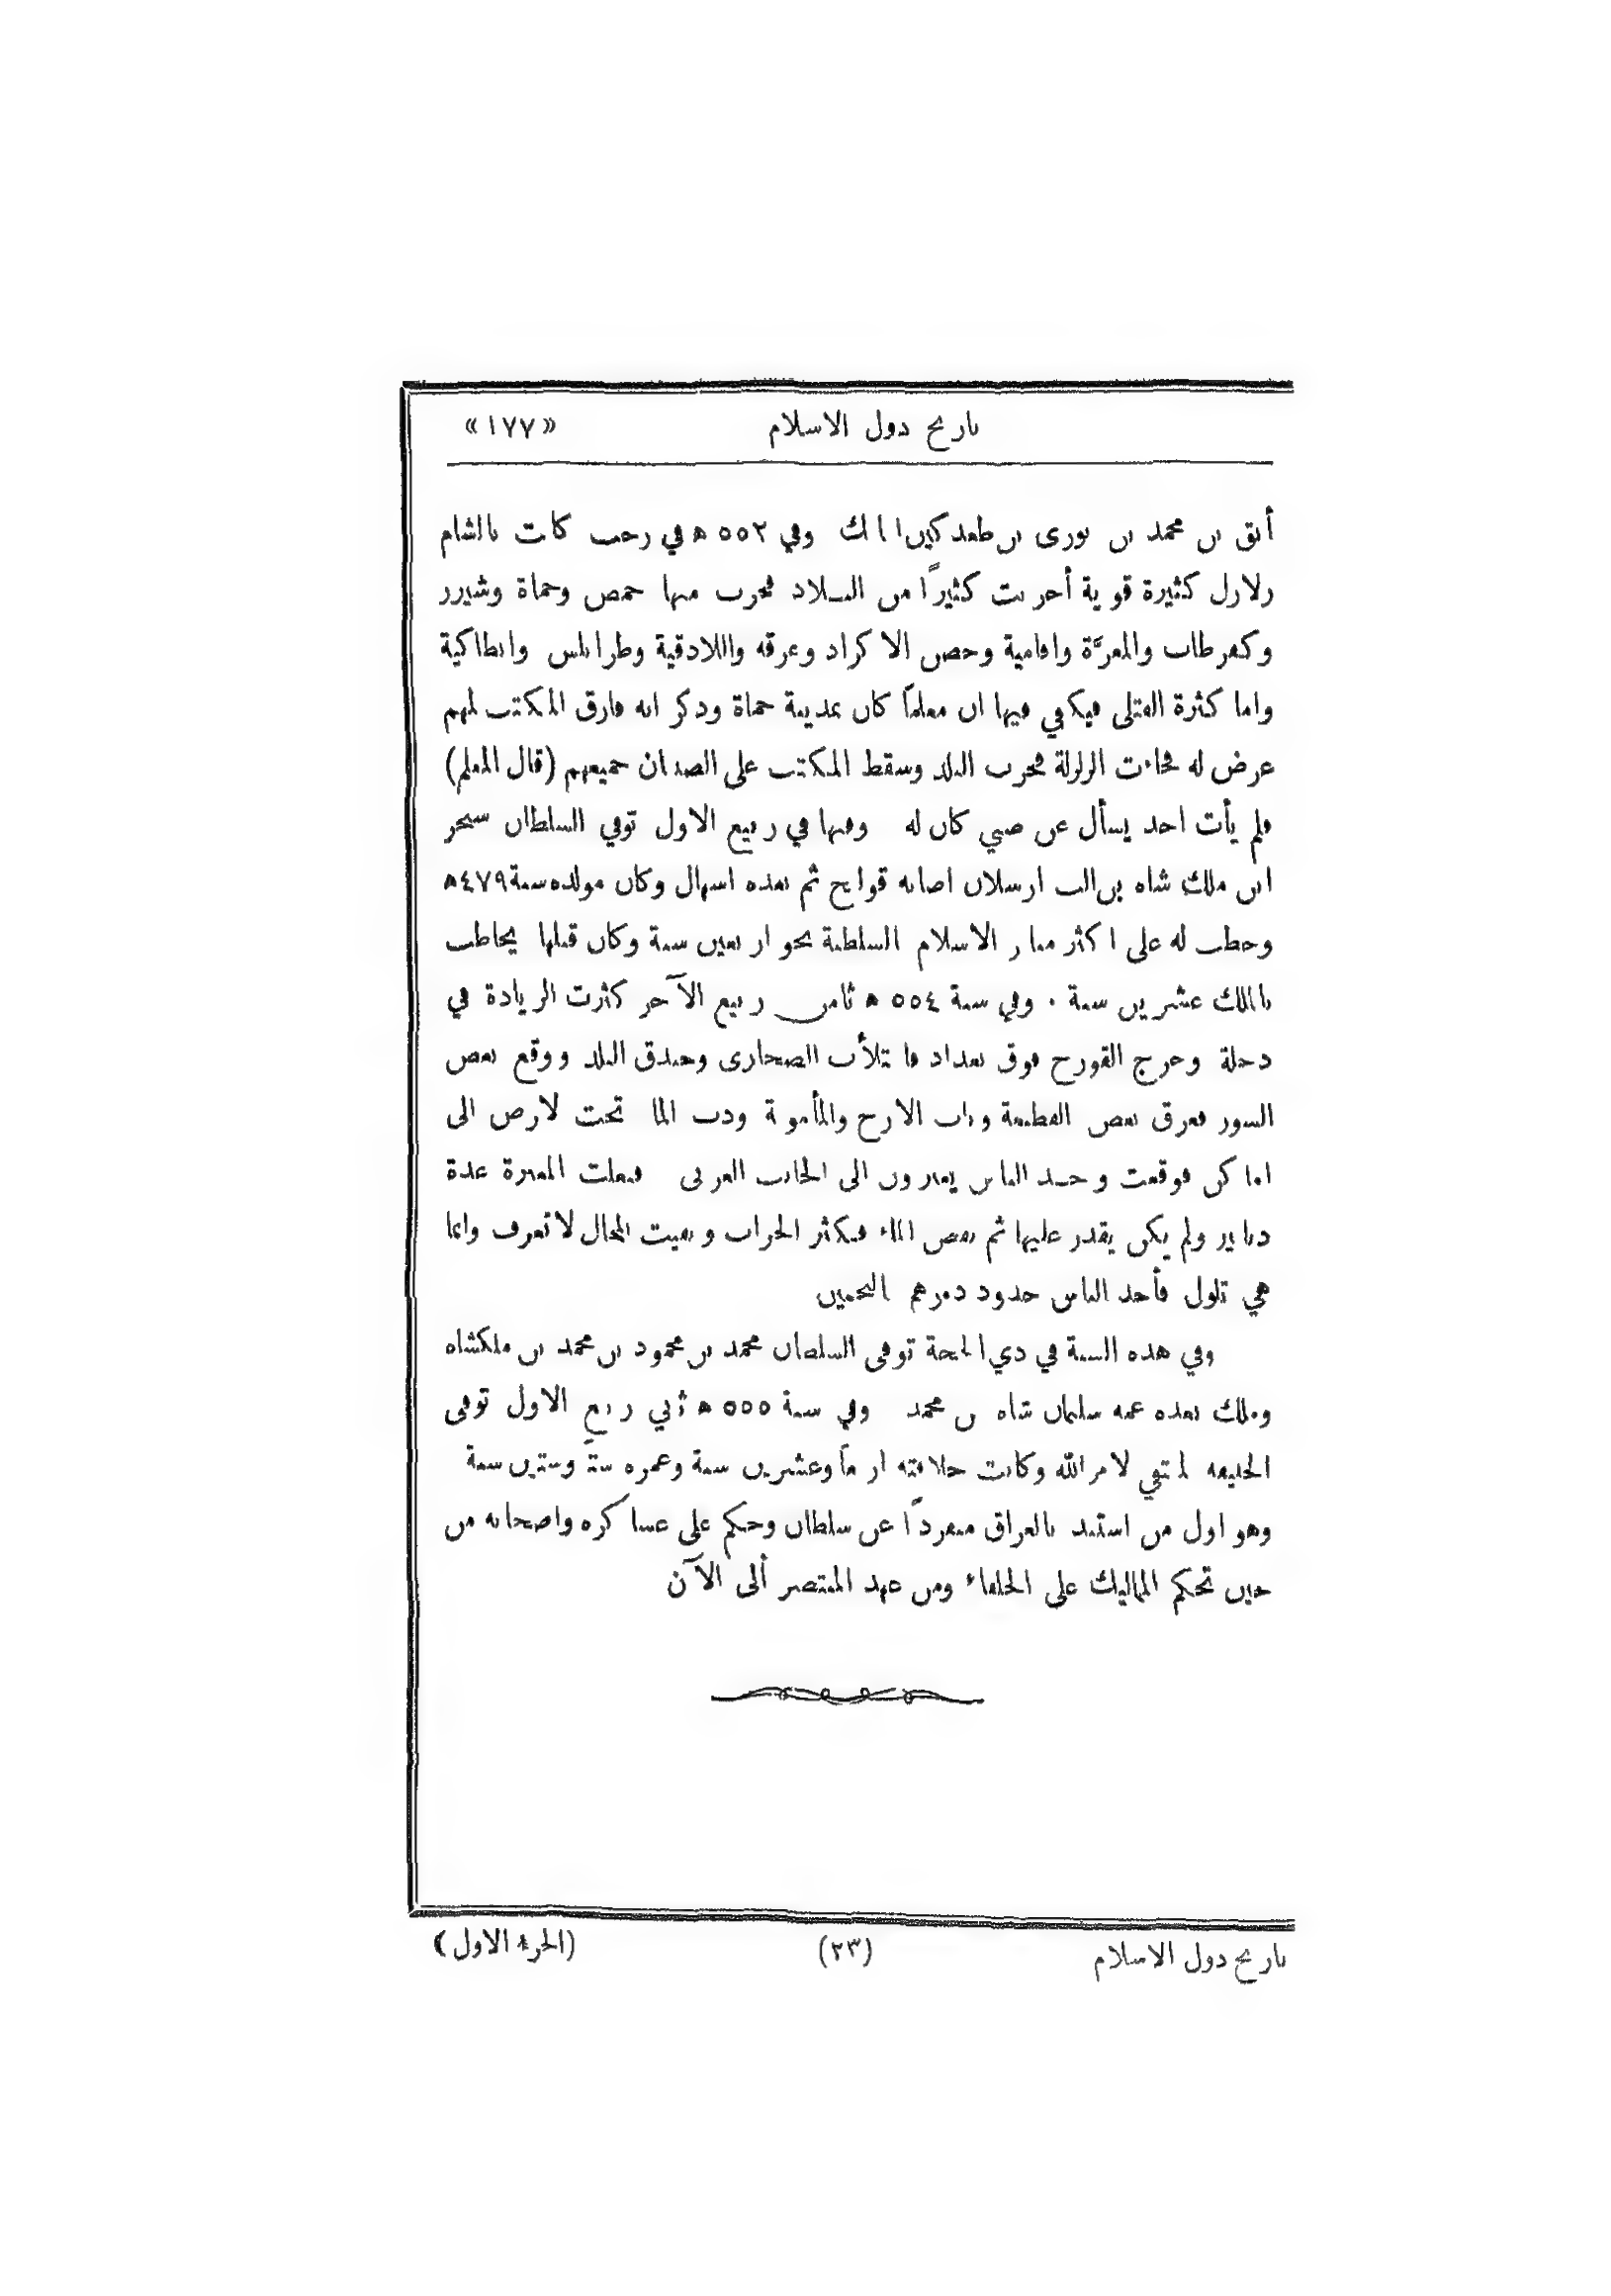 تاريخ دول الاسلام «١٧٧»
أبق بن محمد بن بورى بن طغدكين اتابك وفي ٥٥٢ ه في رجب كانت بالشام
زلازل كثيرة قوية أخربت كثيرًا من البلاد فخرب منها حمص وحماة وشيزر
وكفرطاب والمعرَّة وافامية وحصن الاكراد وعرقه واللاذقية وطرابلس وانطاكية
واما كثرة القتلى فيكفي فيها ان معلماً كان بمدينة حماة وذكر انه فارق المكتب لمهم
عرض له فجاءت الزلزلة فخرب البلد وسقط المكتب على الصبيان جميعهم (قال المعلم)
فلم يأت احد يسأل عن صبي كان له وفيها في ربيع الاول توفي السلطان سنجر
ابن ملك شاه بن الب ارسلان اصابه قولنج ثم بعده اسهال وكان مولده سنة ٤٧٩ه
وخطب له على اكثر منابر الاسلام السلطنة نحو اربعين سنة وكان قبلها يخاطب
بالملك عشرين سنة . وفي سنة ٥٥٤ ه ثامن ربيع الآخر كثرت الزيادة في
دجلة وخرج القورج فوق بغداد فامتلأت الصحارى وخندق البلد ووقع بعض
السور فغرق بعض القطيعة وباب الازج والمأمونية ودب الماء تحت الارض الى
اماكن فوقعت وأخذ الناس يعبرون الى الجانب الغربى فبلغت المعبرة عدة
دنانير ولم يكن يقدر عليها ثم نقص الماء فكثر الخراب وبقيت المحال لا تعرف وانما
هي تلول فأخذ الناس حدود دورهم بالتخمين
وفي هذه السنة في ذي الحجة توفى السلطان محمد بن محمود بن محمد بن ملكشاه
وملك بعده عمه سليمان شاه بن محمد وفي سنة ٥٥٥ ه ثاني ربيع الاول توفى
الخليفه المقتفي لامر الله وكانت خلافته اربعاً وعشرين سنة وعمره ستاً وستين سنة
وهو اول من استبد بالعراق منفردًا عن سلطان وحكم على عساكره واصحابه من
حين تحكم المماليك على الخلفاء ومن عهد المنتصر ألى الآن
تاريخ دول الاسلام (٢٣) (الجزء الاول)